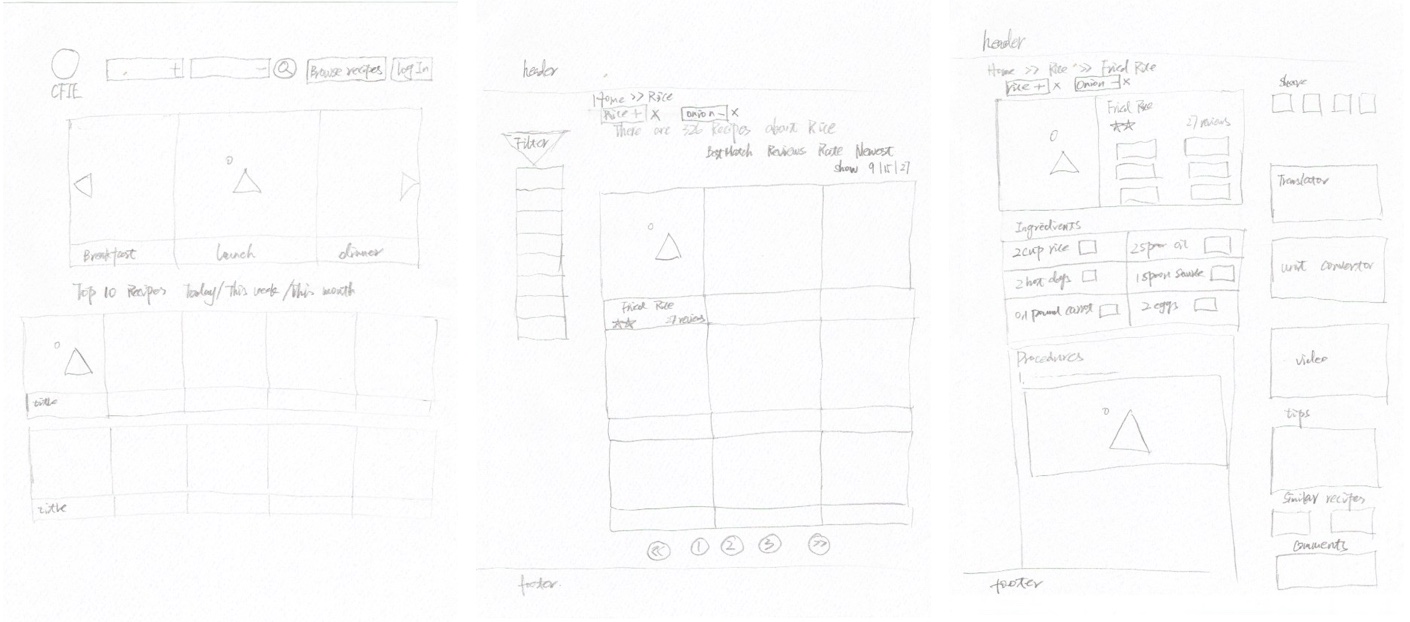 CFIE
+
-
Browse recipes
Log In
Breakfast
Lunch
dinner
Top 10 Recipes Today/This week/This month
title
title
header
Home >> Rice
Rice + x
onion - x
There are 326 Recipes about Rice
Best Match Reviews Rate Newest
show 9|15|27
Filter
Fried Rice
27 reviews
<< 1 2 3 >>
footer
header
Home >> Rice >> Fried Rice
rice + x
onion - x
Fried Rice
27 reviews
Ingredients
2 cup rice
2 spoon oil
2 hot dogs
1 spoon
0.1 pound carrot
2 eggs
Procedures
footer
share
Translator
unit convertor
video
tips
Similar recipes
comments